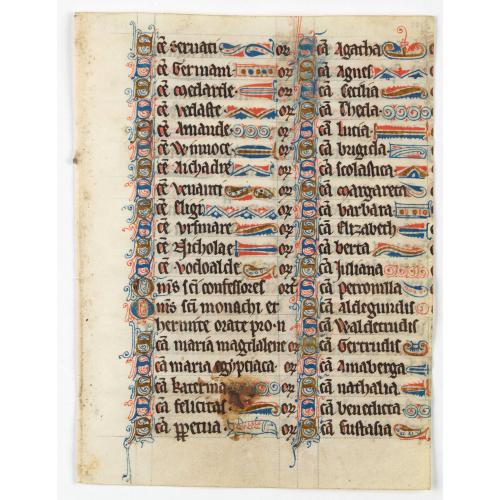 Sce Servati or
Sce Germani or
Sce Medarde or
Sce Vedaste or
Sce Amande or
Sce Winnoce or
Sce Aichadre or
Sce Venanti or
Sce Eligi or
Sce Vrsmare or
Sce Nicholae or
Sce Vodoalde or
Omis sci confessores ort
Omis sci monachi et
heremite orate pro n
Sca maria magdalene or
Sca maria egyptiaca or
Sca Katerina or
Sca felicitas or
Sca ppetua or
Sca Agatha
Sca Agnes
Sca Cecilia
Sca Thecla
Sca Lucia
Sca brigida
Sca scolastica
Sca margareta
Sca barbara
Sca Elizabeth
Sca berta
Sca Juliana
Sca petronilla
Sca aldegundis
Sca Waldetrudis
Sca Gertrudis
Sca Amaberga
Sca nathalia
Sca benedicta
Sca Eustasia